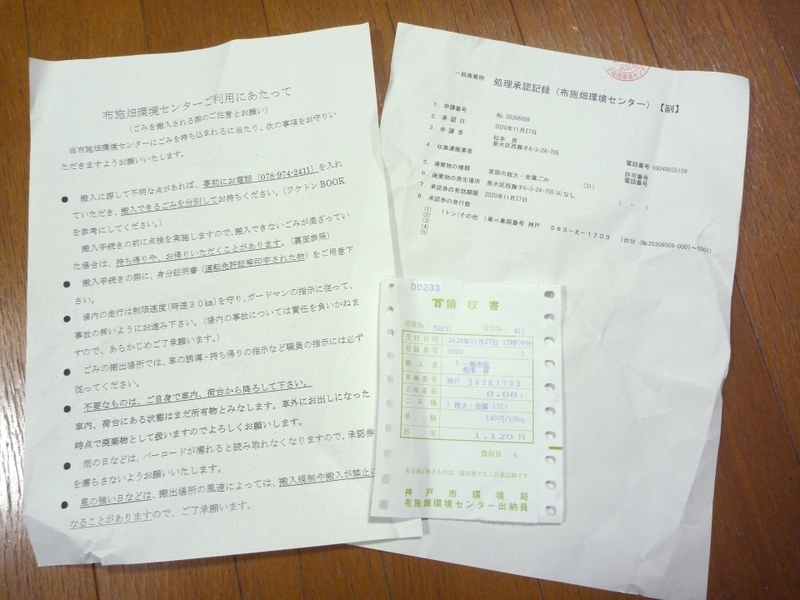 布施畑環境センターご利用にあたって
(ごみを搬入される際のご注意とお願い)
当布施畑環境センターにごみを持ち込まれるに当たり、次の事項をお守りい
ただきますようお願いいたします。
● 搬入に際して不明な点があれば、事前にお電話(078-974-2411)を入れ
ていただき、搬入できるごみを分別してお持ちください。(ワケトンBOOK
を参考にしてください。)
搬入手続きの前に点検を実施しますので、搬入できないごみが混ざってい
た場合は、持ち帰りや、お帰りいただくことがあります。(裏面参照)
● 搬入手続きの際に、身分証明書(運転免許証等印字された物)をご用意下
さい。
● 場内の走行は制限速度(時速30㎞)を守り、ガードマンの指示に従って、
事故の無いようにお進み下さい。(場内の事故については責任を負いかねま
すので、あらかじめご了承願います。)
● ごみの搬出場所では、車の誘導・持ち帰りの指示など職員の指示には必ず
従ってください。
● 不要なものは、ご自身で車内、荷台から降ろして下さい。
車内、荷台にある状態はまだ所有物とみなします。車外にお出しになった
時点で廃棄物として扱いますのでよろしくお願いします。
● 雨の日などは、バーコードが濡れると読み取れなくなりますので、承認券
を濡らさないようお願いいたします。
● 風の強い日などは、搬出場所の風速によっては、搬入規制や搬入が禁止に
なることがありますので、ご了承願います。
一般廃棄物 処理承認記録(布施畑環境センター)【副】
1. 申請番号 No.20206009
2. 承認日 2020年11月27日
3. 申請者 松本 昇
垂水区西舞子6-3-24-705
電話番号 09049035109
4. 収集運搬業者
許可番号
電話番号
5. 廃棄物の種類 家庭の粗大・金属ごみ (31)
6. 廃棄物の発生場所 垂水区西舞子6-3-24-705(A)なし
7. 承認券の有効期限 2020年11月27日 ( ~ )
8. 承認券の発行数
(1) 1トン(その他 )車<車両番号 神戸 583-え-1703 1台分
(2)
(3)
(4)
(5)
00233
領収書
受付No: 411
受付日時 2020年11月27日 15時09分
登録番号 0000 1
搬入者 5 一般市民
松本 昇
車両番号 神戸 583え1703
正味重量 0.08t
ごみ種 3 粗大・金属(31)
単価 140円/10kg
料金 1,120円
領収員: 6
神戸市環境局
布施畑環境センター出納員